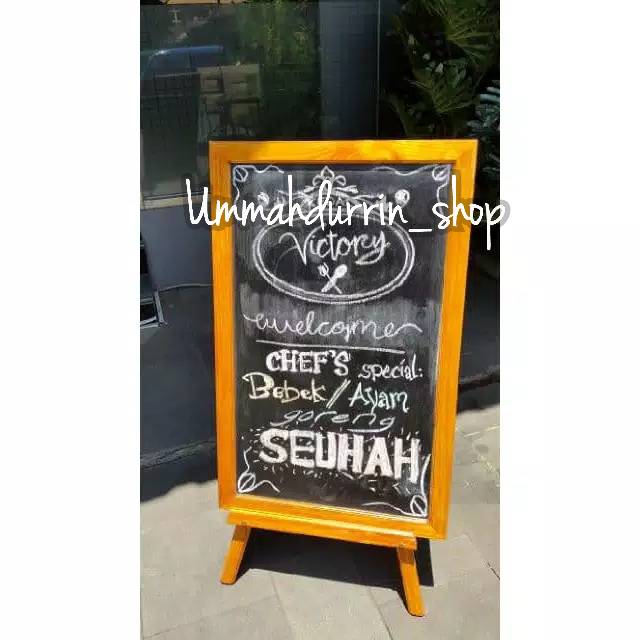 Ummahdurrin_shop
Victory
welcome
CHEF'S special:
Bebek / Ayam
goreng
SEUHAH